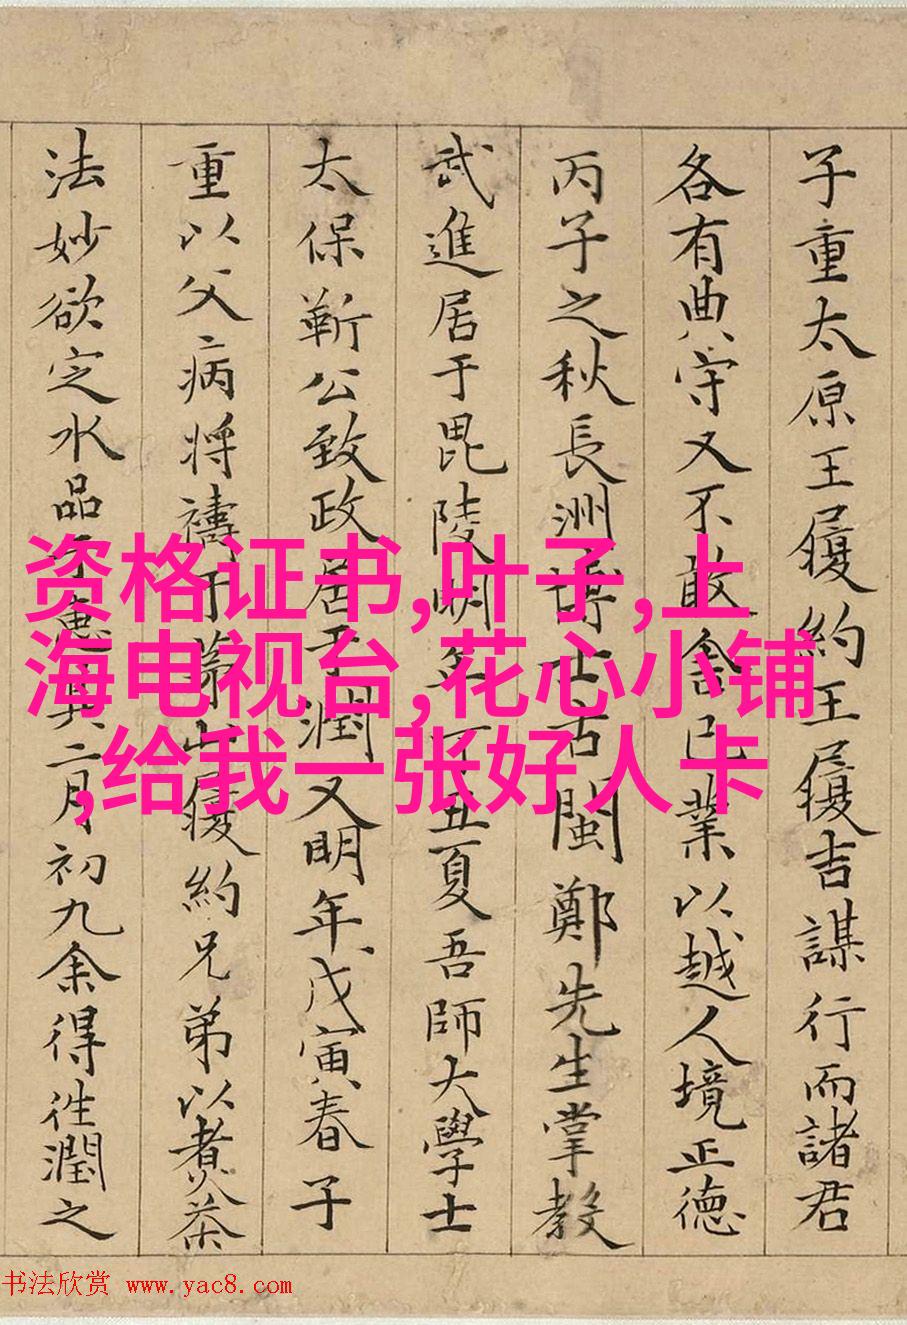 子重太原王履約王履吉謀行而諸君
各有典守又不敢舍己業以越人境正德
丙子之秋長洲博士古閩鄭先生掌教
武進居于毘陵明年丁丑夏吾師大學士
太保靳公致政居于潤又明年戊寅春子
重以父病将禱于茅山履約兄弟以煑茶
法妙欲定水品于惠其二月初九余得徃潤之
资格证书,叶子,上
海电视台,花心小铺
,给我一张好人卡
书法欣赏 www.yac8.com